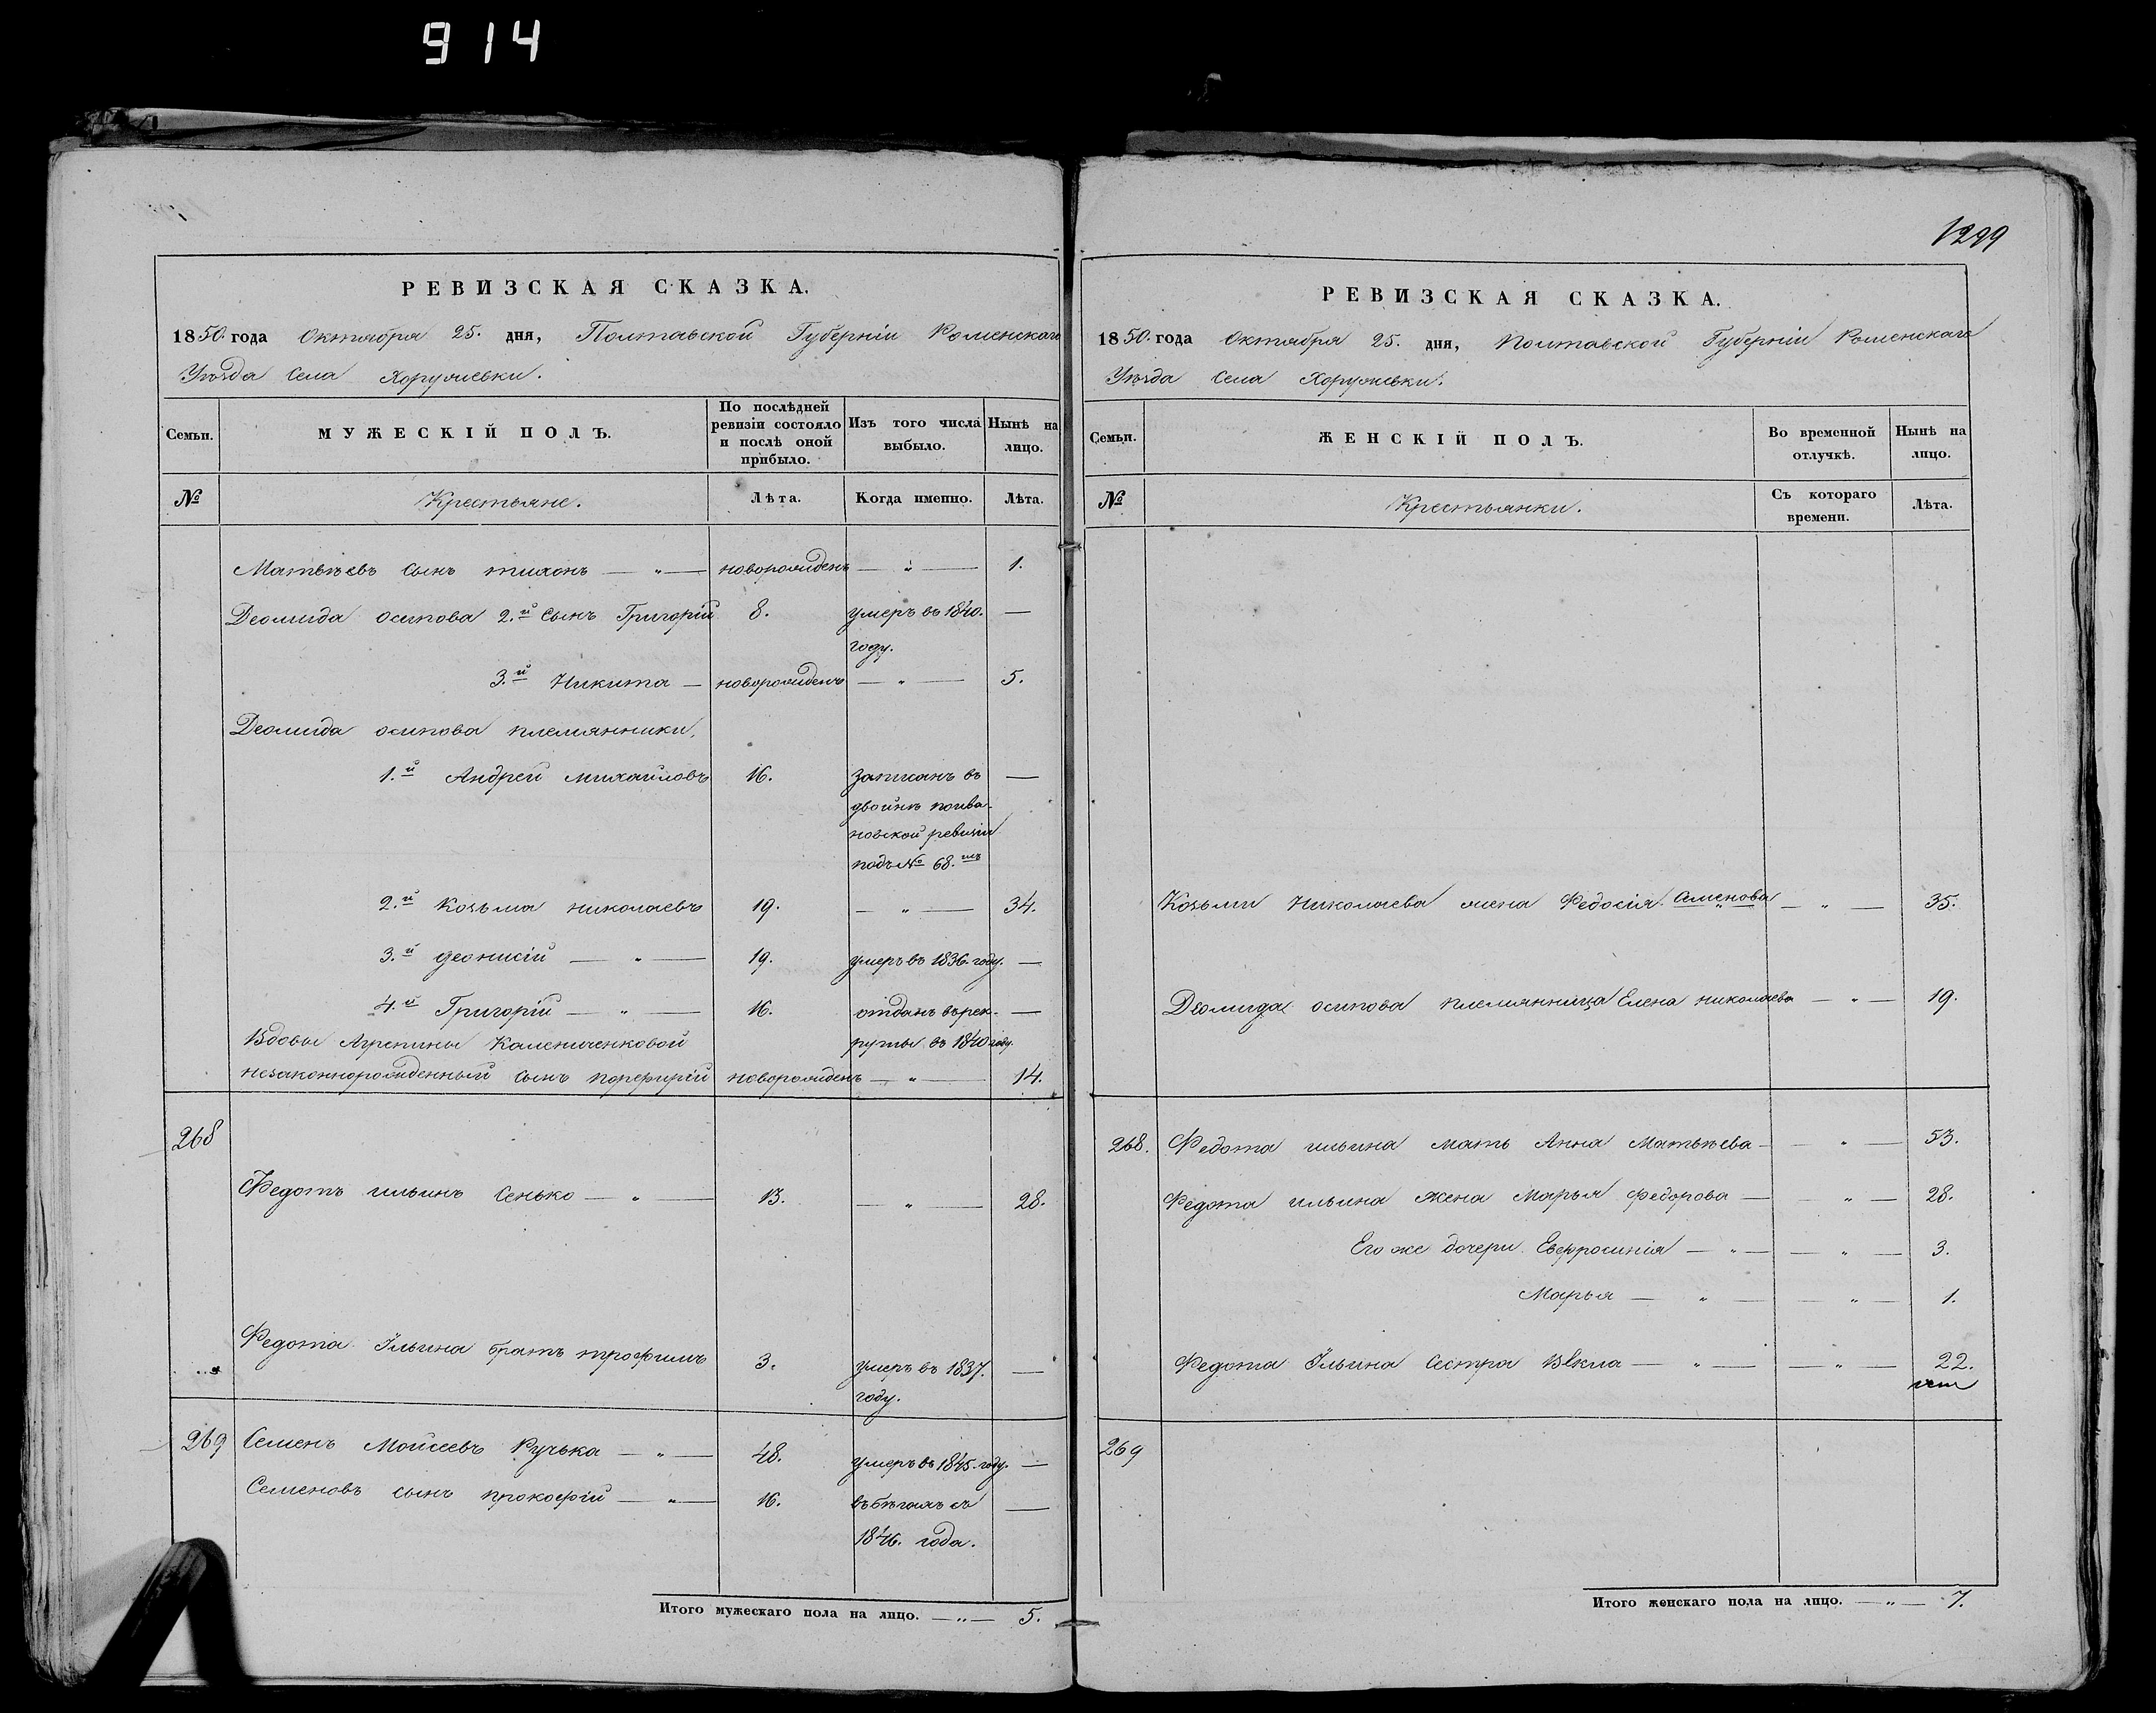 914
РЕВИЗСКАЯ СКАЗКА.
1850. года Октября 25. дня, Полтавской Губерніи Роменскаго
Уѣзда Села Хоружевки.
Семьи.
МУЖЕСКІЙ ПОЛЪ.
По послѣдней ревизіи состояло и послѣ оной прибыло.
Изъ того числа выбыло.
Нынѣ на лицо.
№
Крестьяне.
Лѣта.
Когда именно.
Лѣта.
Матвѣевъ сынъ тихонъ — „ — новорожденъ — „ — 1.
Деомида осипова 2.й сынъ Григорій 8. умеръ въ 1840. —
году.
3.й Никита — новорожденъ — „ — 5.
Деомида осипова племянники,
1.й Андрей михайловъ 16. записанъ въ —
двойнѣ поива-
новской ревизіи
подъ № 68.мъ
2.й Козьма николаевъ 19. — „ — 34.
3.й деонисій — „ — 19. умеръ въ 1836. году. —
4.й Григорій — „ — 16. отданъ върек- —
Вдовы Агрепины Калениченковой руты въ 1840 году.
незаконнорожденный сынъ порфирій новорожденъ — „ — 14.
268
Федотъ ильинъ Сенько — „ — 13. — „ — 28.
Федота Ільина братъ трофимъ 3. умеръ въ 1837. —
году.
269 Семенъ Мойсеевъ Ручька — „ — 48. умеръ въ 1845. году. —
Семеновъ сынъ прокофій — „ — 16. въ бѣгахъ съ —
1846. года.
Итого мужескаго пола на лицо. — „ — 5.
1299
РЕВИЗСКАЯ СКАЗКА.
1850. года Октября 25. дня, Полтавской Губерніи Роменскаго
Уѣзда Села Хоружевки.
Семьи.
ЖЕНСКІЙ ПОЛЪ.
Во временной отлучкѣ.
Нынѣ на лицо.
№
Крестьянки.
Съ котораго времени.
Лѣта.
Козьми Николаева жена Федосія Аменова — „ — 35.
Деомида осипова племянница Елена николаева — „ — 19.
268. Федота ильина мать Анна Матвѣева — — „ — 53.
Федота ильина жена Марья федорова — — „ — 28.
Его же дочери Евфросинія — „ — — „ — 3.
Марья — „ — — „ — 1.
Федота Ільина сестра Вѣкла — „ — — „ — 22.
269
Итого женскаго пола на лицо. — „ — 7.